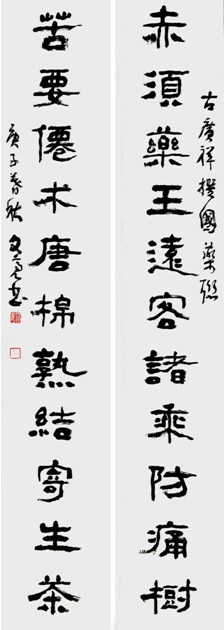 古廣祥撰國藥聯
赤須藥王遠客諸乘防痛樹
苦要僊术唐棉熟結寄生茶
庚子春秋文亮書